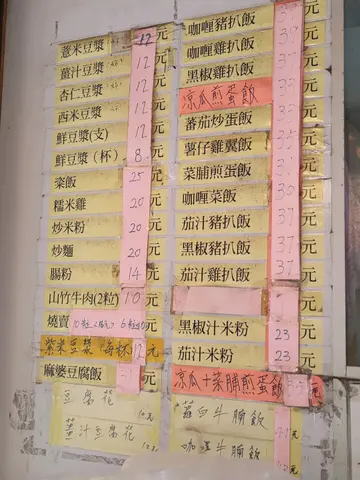 薏米豆漿 12 元
薑汁豆漿 12 元
杏仁豆漿 12 元
西米豆漿 12 元
鮮豆漿(支) 12 元
鮮豆漿（杯） 8 元
粢飯 25 元
糯米雞 20 元
炒米粉 20 元
炒麵 20 元
腸粉 14 元
山竹牛肉(2粒) 10 元
燒賣 元
紫米豆漿 每杯 12 元
麻婆豆腐飯 元
豆腐花
薑汁豆腐花
咖喱豬扒飯 元
咖喱雞扒飯 元
黑椒雞扒飯 元
涼瓜煎蛋飯 元
蕃茄炒蛋飯 元
薯仔雞翼飯 元
菜脯煎蛋飯 元
咖喱菜飯 元
茄汁豬扒飯 37 元
黑椒豬扒飯 37 元
茄汁雞扒飯 37 元
元
黑椒汁米粉 23 元
茄汁米粉 23 元
涼瓜十菜脯煎蛋飯 元
蘿白牛腩飯
咖喱牛腩飯